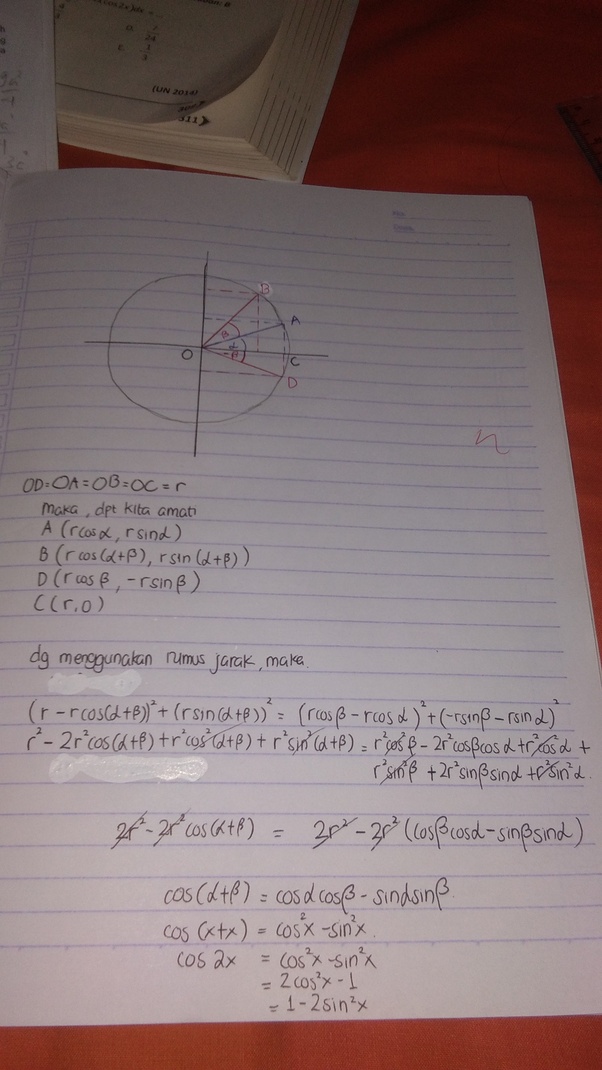 D. 7/24
E. -1/3
(UN 2014)
311
B
A
β
α
O
β
C
D
OD=OA=OB=OC=r
maka, dpt kita amati
A (rcosα, rsinα)
B (r cos(α+β), rsin(α+β))
D (rcosβ, -rsinβ)
C (r,0)
dg menggunakan rumus jarak, maka.
(r-rcos(α+β))²+(rsin(α+β))² = (rcosβ-rcosα)²+(-rsinβ-rsinα)²
r²-2r²cos(α+β)+r²cos²(α+β)+r²sin²(α+β) = r²cos²β-2r²cosβcosα+r²cos²α+
r²sin²β+2r²sinβsinα+r²sin²α.
2r²-2r²cos(α+β) = 2r²-2r²(cosβcosα-sinβsinα)
cos(α+β) = cosαcosβ-sinαsinβ.
cos(x+x) = cos²x-sin²x.
cos 2x = cos²x-sin²x
= 2cos²x-1
= 1-2sin²x